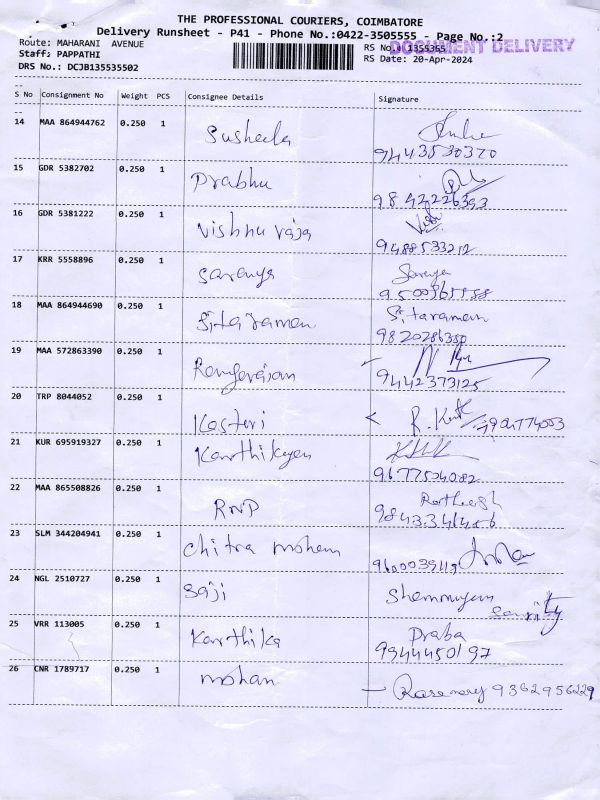 THE PROFESSIONAL COURIERS, COIMBATORE
Delivery Runsheet - P41 - Phone No.:0422-3505555 - Page No.:2
Route: MAHARANI AVENUE
RS No.: 1355355
DOCUMENT DELIVERY
Staff: PAPPATHI
RS Date: 20-Apr-2024
DRS No.: DCJB135535502
S No Consignment No Weight PCS Consignee Details Signature
14 MAA 864944762 0.250 1 Susheela
9443530370
15 GDR 5382702 0.250 1 Prabhu
9842226393
16 GDR 5381222 0.250 1 Vishnu raja
9488533212
17 KRR 5558896 0.250 1 Saranya Saranya
18 MAA 864944690 0.250 1 Sitaraman Sitaraman
9820286350
19 MAA 572863390 0.250 1 Rangarajan
9442373125
20 TRP 8044052 0.250 1 Kasturi
21 KUR 695919327 0.250 1 Karthikeyan
9677504082
22 MAA 865508826 0.250 1 RNP
23 SLM 344204941 0.250 1 Chitra mohan
9600039119
24 NGL 2510727 0.250 1 Saji
25 VRR 113005 0.250 1 Karthika Praba
9944450197
26 CNR 1789717 0.250 1 mohan Rosemary 9362956229